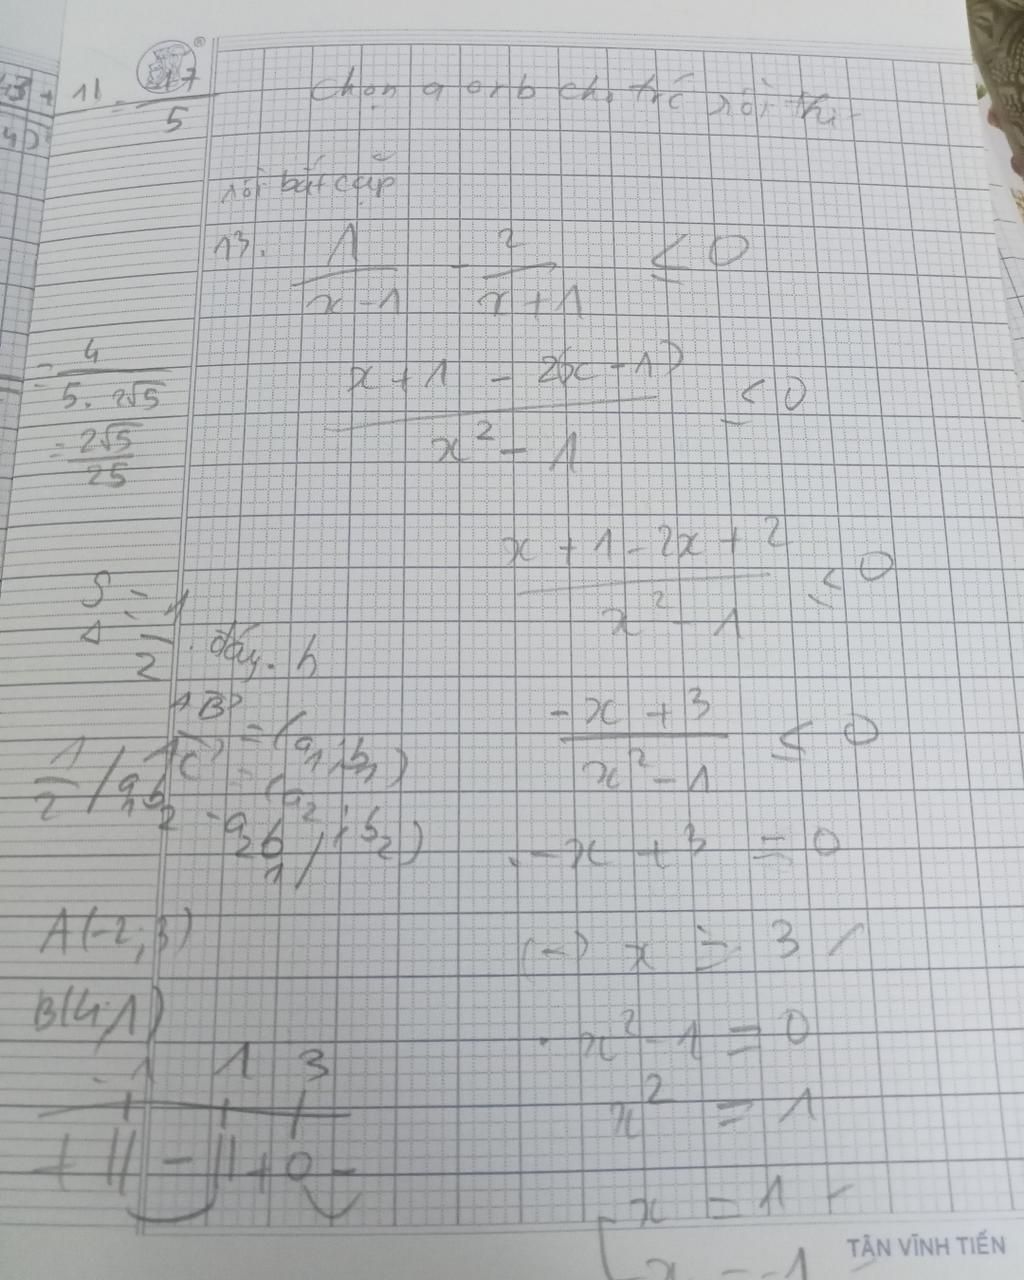 11. -17/5
chọn a or b cho trc rồi thử
rồi bắt cặp
13. 1/(x-1) - 2/(x+1) ≤ 0
= 4/(5.2√5)
(x+1 - 2(x-1))/(x² - 1) ≤ 0
= 2√5/25
(x+1-2x+2)/(x² - 1) ≤ 0
S△ = 1/2 . đáy. h
AB = (a₁; b₁)
AC = (a₂; b₂)
1/2 |a₁b₂ - a₂b₁|
(-x+3)/(x²-1) ≤ 0
. -x + 3 = 0
A(-2;3)
(-) x = 3
B(4;1)
. x² - 1 = 0
-1 1 3
x² = 1
+ || - || + 0 -
[ x = 1
x = -1
TÂN VĨNH TIẾN